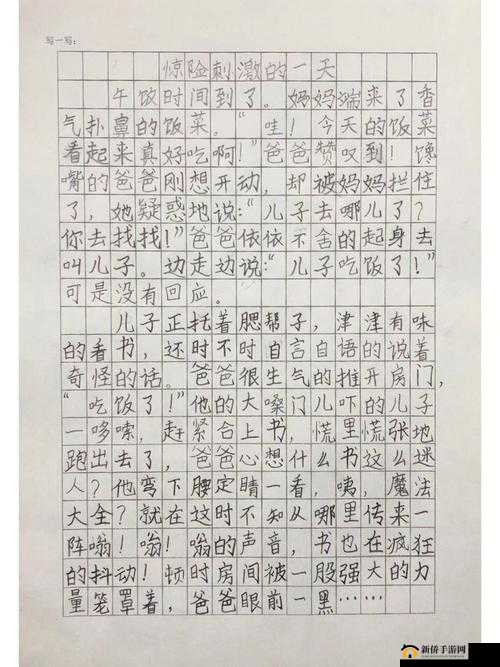 写一写:
惊险刺激的一天
午饭时间到了。妈妈端来了香
气扑鼻的饭菜。“哇！今天的饭菜
看起来真好吃啊！”爸爸赞叹到！馋
嘴的爸爸刚想开动，却被妈妈拦住
了，她疑惑地说：“儿子去哪儿了？
你去找找！”爸爸依依不舍的起身去
叫儿子。边走边说：“儿子吃饭了！”
可是没有回应。
儿子正托着腮帮子，津津有味
的看书，还时不时自言自语的说着
奇怪的话。爸爸很生气的推开房门，
“吃饭了！”他的大嗓门儿吓的儿子
一哆嗦，赶紧合上书，慌里慌张地
跑出去了，爸爸心想什么书这么迷
人？他弯下腰定睛一看，咦，魔法
大全？就在这时不知从哪里传来一
阵嗡！嗡！嗡的声音，书也在疯狂
的抖动！顿时房间被一股强大的力
量笼罩着，爸爸眼前一黑……
新侨手游网